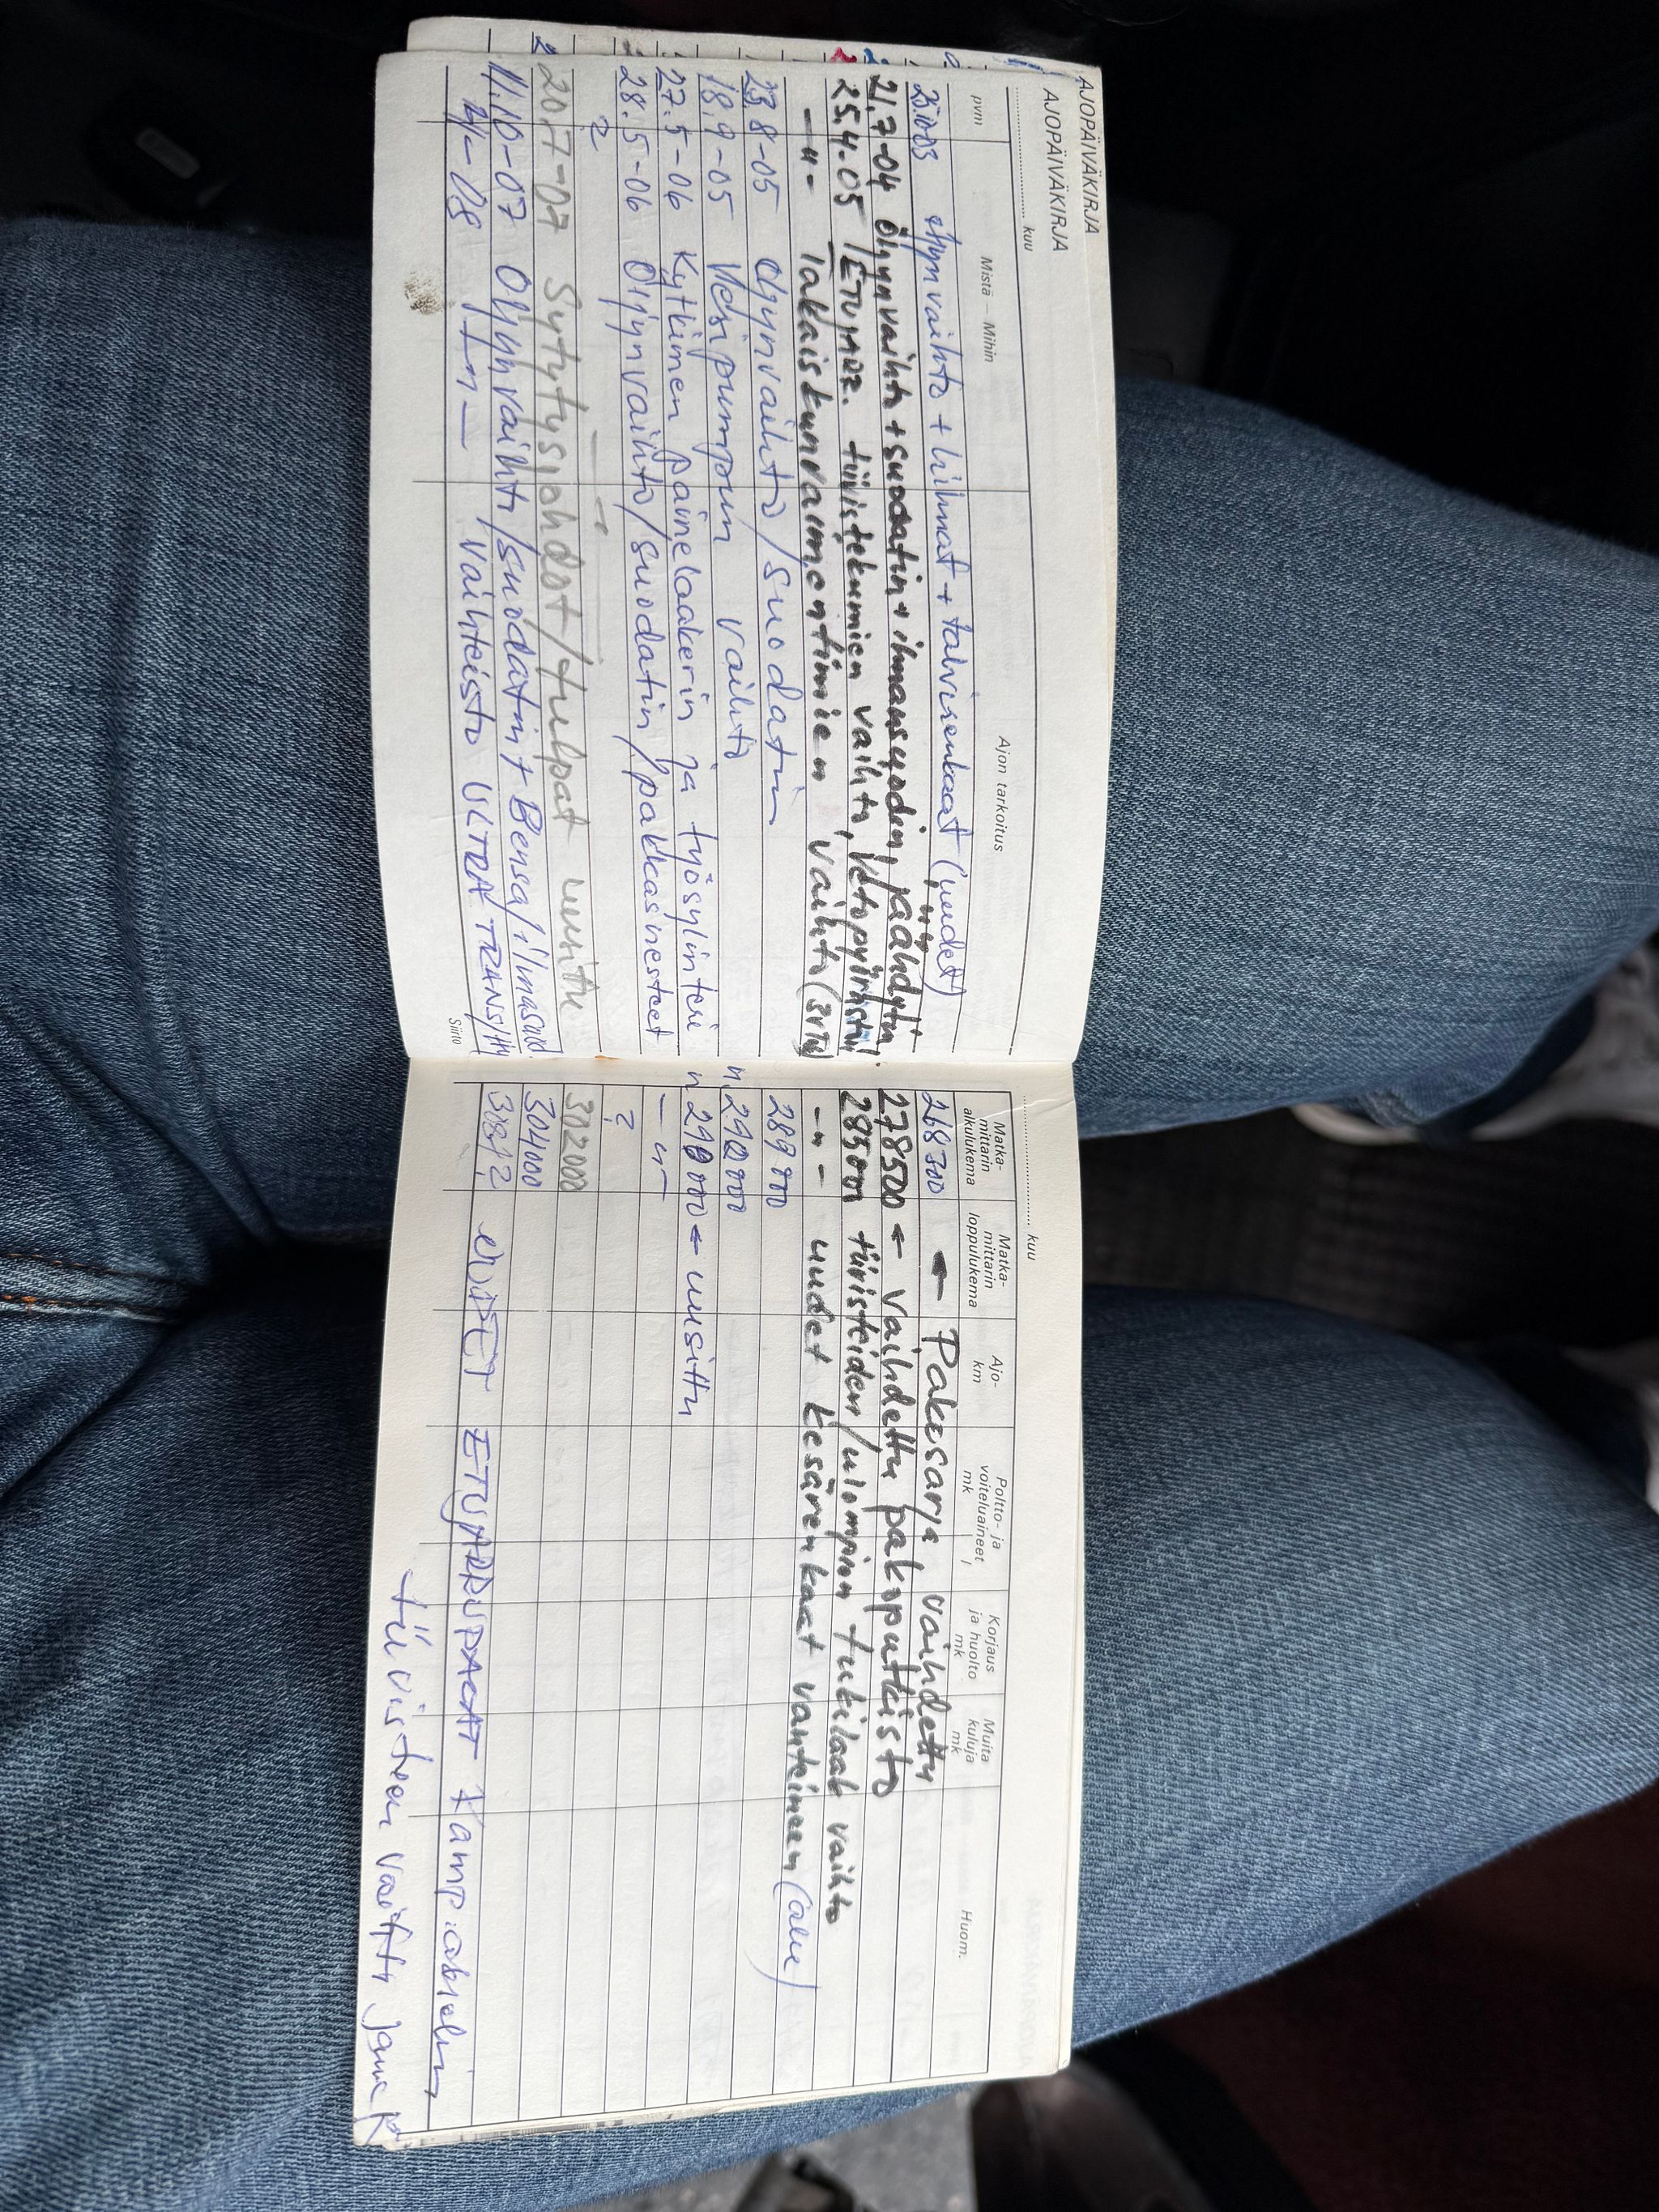 AJOPÄIVÄKIRJA
AJOPÄIVÄKIRJA
kuu
pvm
Mistä – Mihin
Ajon tarkoitus
öljynvaihto + hihnat + talvirenkaat (uudet)
21.7-04 Öljynvaihto + suodatin + ilmansuodin, jäähdytin
25.4-05 ETUJAR. tiivistekumien vaihto,
–"– takaiskunvaimentimien vaihto
23.8-05 Öljynvaihto/suodatin
18.9-05 Vesipumpun vaihto
27.5-06 Kytkimen painelaakerin ja työsylinteri
28.5-06 Öljynvaihto/suodatin/pakkasnesteet
?
20.7-07 Sytytysjohdot/tulpat uusittu
11.10-07 Öljynvaihto/suodatin + Bensa/ilmasuod.
-08 –"– Vaihteisto ULTRA
Siirto
kuu
Matka-
mittarin
alkulukema
Matka-
mittarin
loppulukema
Ajo-
km
Poltto- ja
voiteluaineet
mk l
Korjaus
ja huolto
mk
Muita
kuluja
mk
Huom.
268 300 ← Pakosarja vaihdettu
278500 ← vaihdettu pakoputkisto
285000 tiivisteiden/ulompien tukilaak vaihto
–"– uudet kesärenkaat vanteineen (alu)
289 000
n. 290 000
n 290 000 ← uusittu
–"–
?
302000
304000
UUDET ETUJARRUPALAT Kampiakselin
tiivisteen vaihto